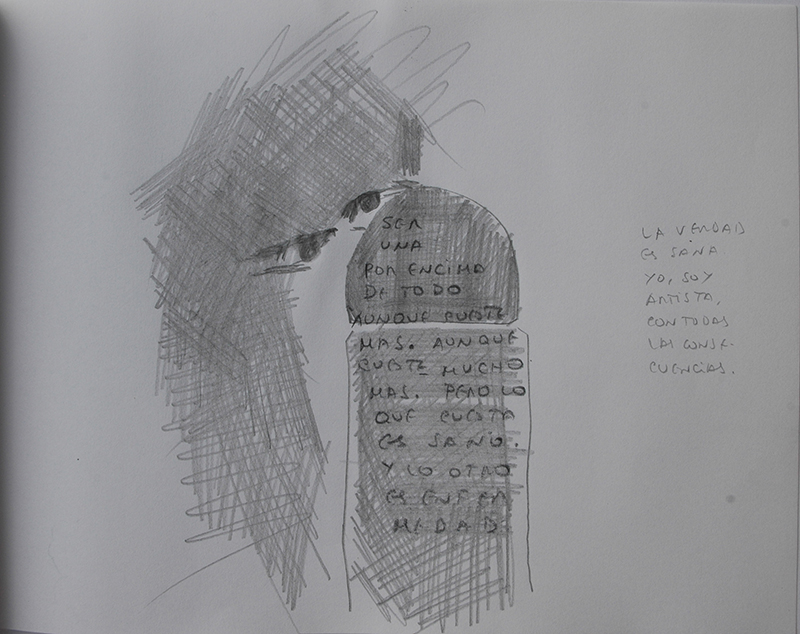 SER
UNA
POR ENCIMA
DE TODO
AUNQUE CUESTE
MAS. AUNQUE
CUESTE MUCHO
MAS. PERO LO
QUE CUESTA
ES SANO.
Y LO OTRO
ES ENFER
MEDAD.
LA VERDAD
ES SANA
YO, SOY
ARTISTA,
CON TODAS
LAS CONSE-
CUENCIAS.